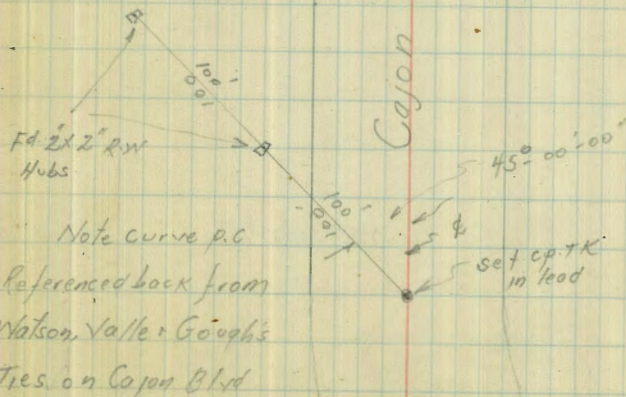 100'
100
Cajon
Fd 2"x2" R.W
Hubs
45°-00'-00"
100'
100'
℄
set cp. TK
in lead
Note curve p.c
Referenced back from
Watson, Valle & Gough's
Ties on Cajon Blvd